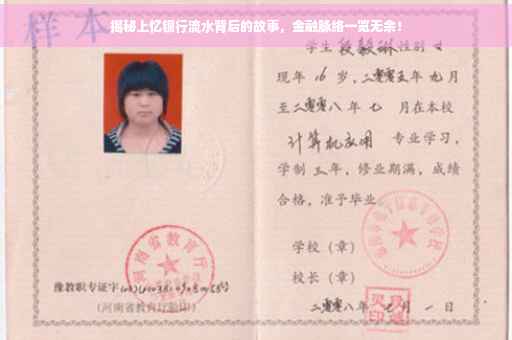 揭秘上亿银行流水背后的故事，金融脉络一览无余！
样本
学生段毅琳性别女
现年16岁，二零零五年九月
至二零零八年七 月在本校
计算机应用 专业学习，
学制三年，修业期满，成绩
合格，准予毕业
学校（章）
校长（章）
二零零八年 月一日
河南省教育厅
豫教职专证字
（河南省教育厅验印）